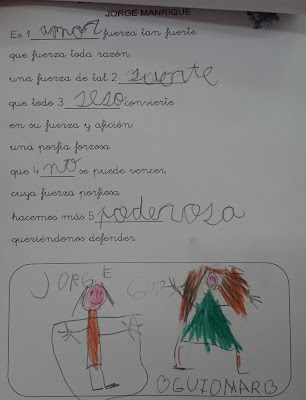 JORGE MANRIQUE
Es 1 amor fuerza tan fuerte
que fuerza toda razón;
una fuerza de tal 2 suerte
que todo 3 seso convierte
en su fuerza y afición;
una porfía forzosa
que 4 no se puede vencer,
cuya fuerza porfiosa
hacemos más 5 poderosa
queriéndonos defender.
JORGE
GUIOMAR